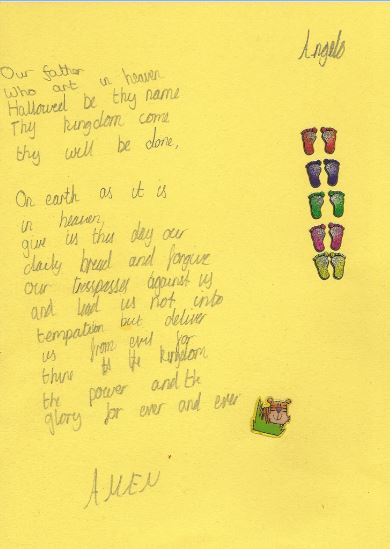 Angelo
Our father
Who art in heaven
Hallowed be thy name
Thy kingdom come
thy will be done,
On earth as it is
in heaven,
give us this day our
daily bread and forgive
our tresspasses against us
and lead us not into
tempation but deliver
us from evil for
thine the kingdom
the power and the
glory for ever and ever
AMEN